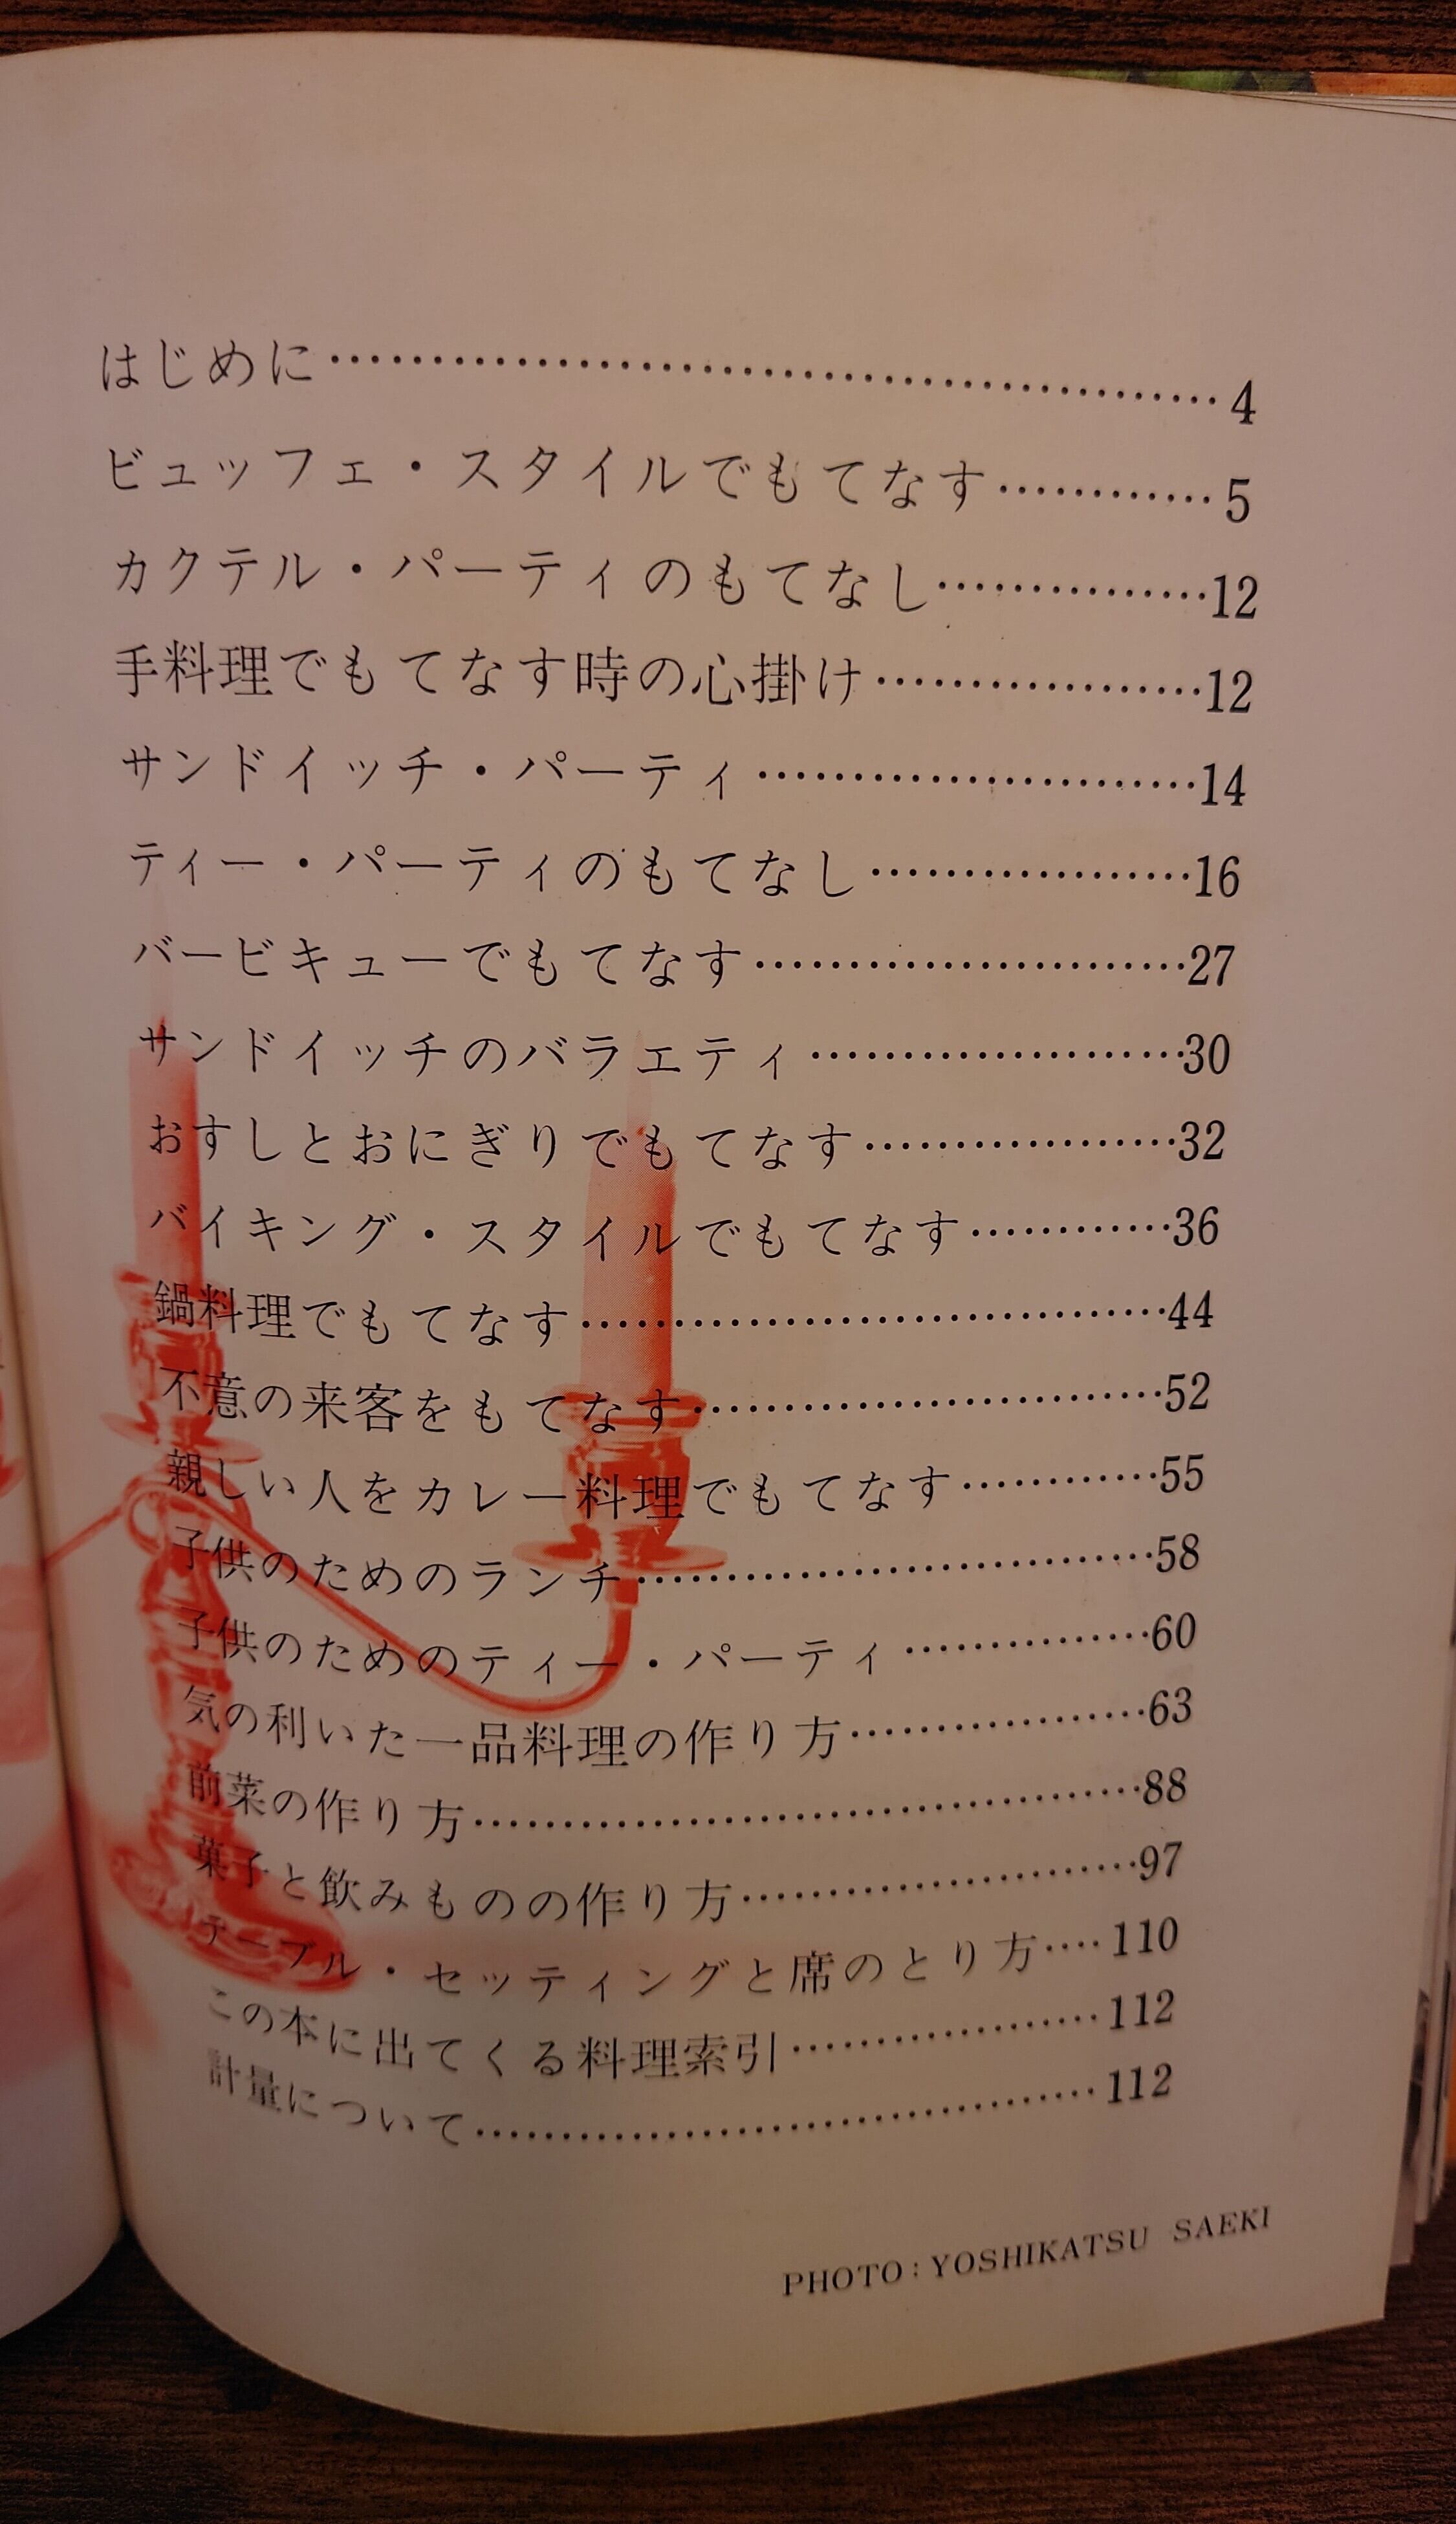 はじめに…………………………………………4
ビュッフェ・スタイルでもてなす…………5
カクテル・パーティのもてなし……………12
手料理でもてなす時の心掛け………………12
サンドイッチ・パーティ……………………14
ティー・パーティのもてなし………………16
バービキューでもてなす……………………27
サンドイッチのバラエティ…………………30
おすしとおにぎりでもてなす………………32
バイキング・スタイルでもてなす…………36
鍋料理でもてなす……………………………44
不意の来客をもてなす………………………52
親しい人をカレー料理でもてなす…………55
子供のためのランチ…………………………58
子供のためのティー・パーティ……………60
気の利いた一品料理の作り方………………63
前菜の作り方…………………………………88
菓子と飲みものの作り方……………………97
テーブル・セッティングと席のとり方……110
この本に出てくる料理索引…………………112
計量について…………………………………112
PHOTO:YOSHIKATSU SAEKI